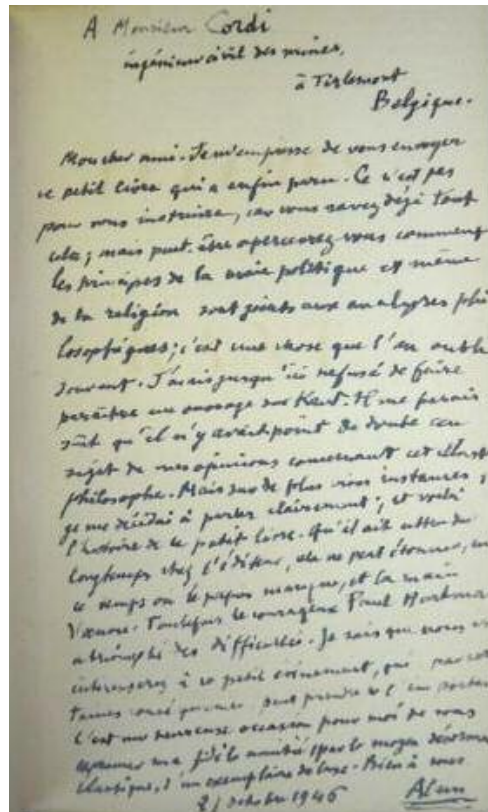 A Monsieur Cordi
ingénieur civil des mines,
à Tirlemont
Belgique.
Mon cher ami. Je m'empresse de vous envoyer
ce petit livre qui a enfin paru. Ce n'est pas
pour vous instruire, car vous savez déjà tout
cela; mais peut-être apercevrez vous comment
les principes de la vraie politique et même
de la religion sont joints aux analyses phi
losophiques; c'est une chose que l'on oublie
souvent. J'avais jusqu'ici refusé de faire
paraître un ouvrage sur Kant. Il me
qu'il n'y avait point de doute au
sujet de mes opinions concernant cet illustre
philosophe. Mais sur de plus vives instances,
je me décidai à parler clairement; et voilà
l'histoire de ce petit livre. Qu'il ait attendu
longtemps chez l'éditeur, cela ne peut étonner, en
ce temps où le papier manque, et la main
d'œuvre. Toutefois le courageux Paul Hartmann
a triomphé des difficultés. Je sais que vous
à ce petit événement, qui par
peut prendre
C'est une heureuse occasion pour moi de vous
ma fidèle amitié par le moyen désormais
classique, d'un exemplaire de luxe. Bien à vous
21 octobre 1946 Alain